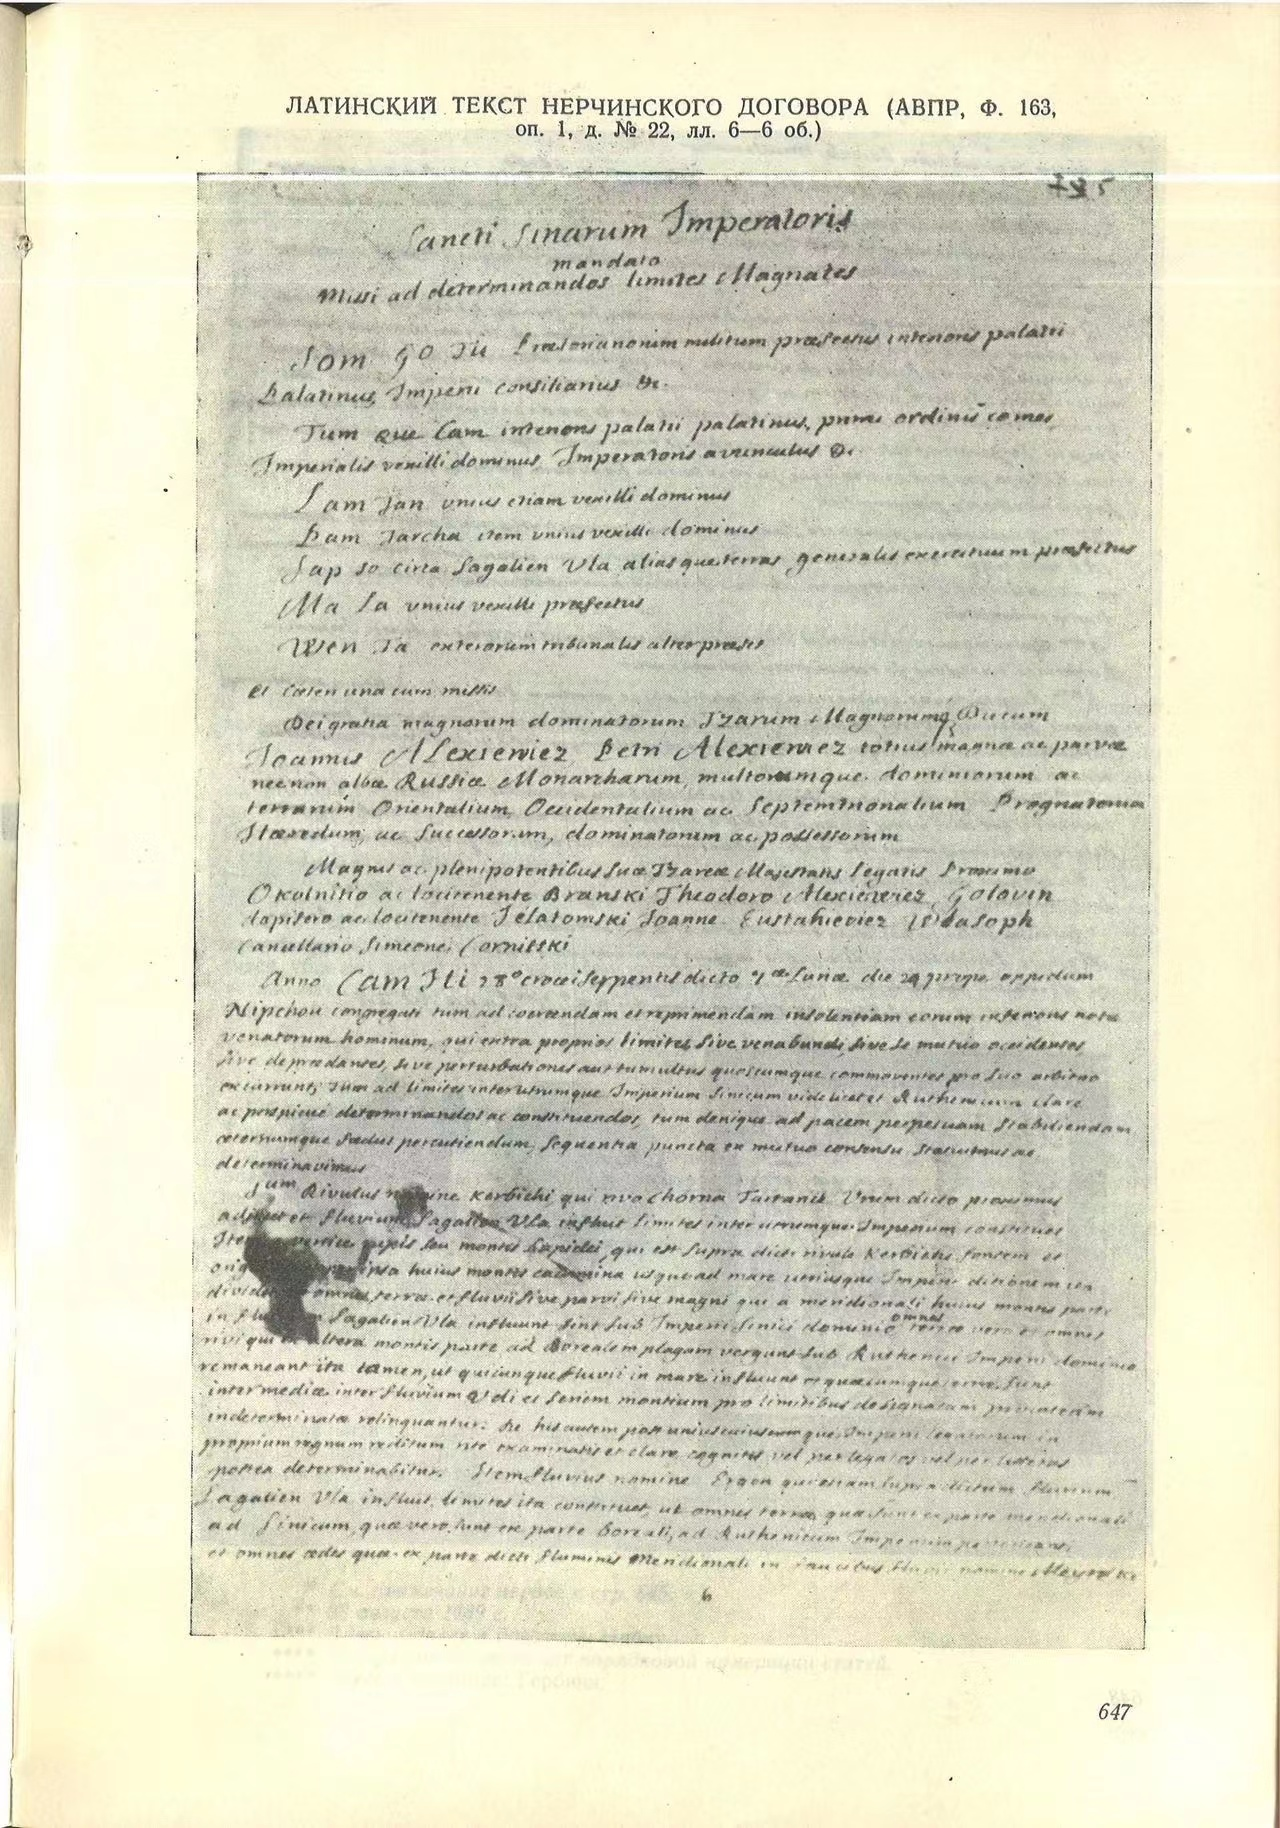 ЛАТИНСКИЙ ТЕКСТ НЕРЧИНСКОГО ДОГОВОРА (АВПР, Ф. 163,
оп. 1, д. № 22, лл. 6—6 об.)
Sancti Sinarum Imperatoris
mandato
Missi ad determinandos limites Magnates
Som Go Tu Praetorianorum militum praefectus interioris palatii
Palatinus, Imperii consiliarius &c.
Tum Que Cam interioris palatii palatinus, primi ordinis comes,
Imperialis vexilli dominus, Imperatoris avunculus &c.
Lam Tan unius etiam vexilli dominus
Pam Tarcha item unius vexilli dominus
Sap so circa Sagalien Vla aliasque terras generalis exercituum praefectus
Ma La unius vexilli praefectus
Wen Ta exteriorum tribunalis alter praeses
et caeteri una cum missis
Dei gratia magnorum dominatorum Tzarum Magnorumq Ducum
Joannis Alexiewicz, Petri Alexiewicz totius magnae ac parvae
necnon albae Russiae Monarcharum, multorumque dominiorum ac
terrarum Orientalium, Occidentalium ac Septemtrionalium Prognatorum
Haeredum, ac Successorum, dominatorum ac possessorum
Magnis ac plenipotentibus suae Tzareae Majestatis legatis Proximo
Okolnitio ac locitenente Branski Theodoro Alexieviecz Golovin
dapifero ac locitenente Jelatomski Joanne Eustahievicz Wlasoph
Cancellario Simeone Cornitski
Anno Cam Hi 28° crocei serpentis dicto 7ae Lunae die 24 prope oppidum
Nipchou congregati tum ad coercendam et reprimendam insolentiam eorum inferioris notae
venatorum hominum, qui extra proprios limites sive venabundi sive se mutuo occidentes,
sive depraedantes, sive perturbationes aut tumultus quoscumque commoventes pro suo arbitrio
excurrunt, tum ad limites inter utrumque Imperium Sinicum videlicet et Ruthenicum clare
ac perspicue determinandos ac constituendos, tum denique ad pacem perpetuam stabiliendam
aeternumque faedus percutiendum, sequentia puncta ex mutuo consensu statuimus ac
determinavimus
1um Rivulus nomine Kerbichi, qui rivo Chorna Tartarice Urum dicto proximus
adjacet et fluvium Sagalien Vla influit limites inter utrumque Imperium constituet
Item vertice rupis seu montis lapidei, qui est supra dicti rivuli Kerbichi fontem et
ipsa huius montis cacumina usque ad mare utriusque Imperii ditionem ita
omnes terrae et fluvii sive parvi sive magni qui a meridionali huius montis parte
in Sagalien Vla influunt sint sub Imperii Sinici dominio
omnes
terrae vero et omnes
rivi qui altera montis parte ad Borealem plagam vergunt sub Ruthenici Imperii dominio
remaneant ita tamen, ut quicunque fluvii in mare influunt et quaecumque terrae sunt
intermediae inter fluvium Vdi et seriem montium pro limitibus designatam prointerim
indeterminatae relinquantur. De his autem post uniuscuiuscumque Imperii legatorum in
proprium regnum reditum rite examinatis et clare cognitis vel per legatos vel per litteras
postea determinabitur. Item fluvius nomine Ergon qui etiam supra dictum fluvium
Sagalien Vla influit, limites ita constituet, ut omnes terrae quae sunt ex parte meridionali
ad Sinicum, quae vero sunt ex parte boreali, ad Ruthenicum Imperium pertineant
et omnes aedes quae ex parte dicti fluminis meridionali in faucibus fluvii nomine
6
647